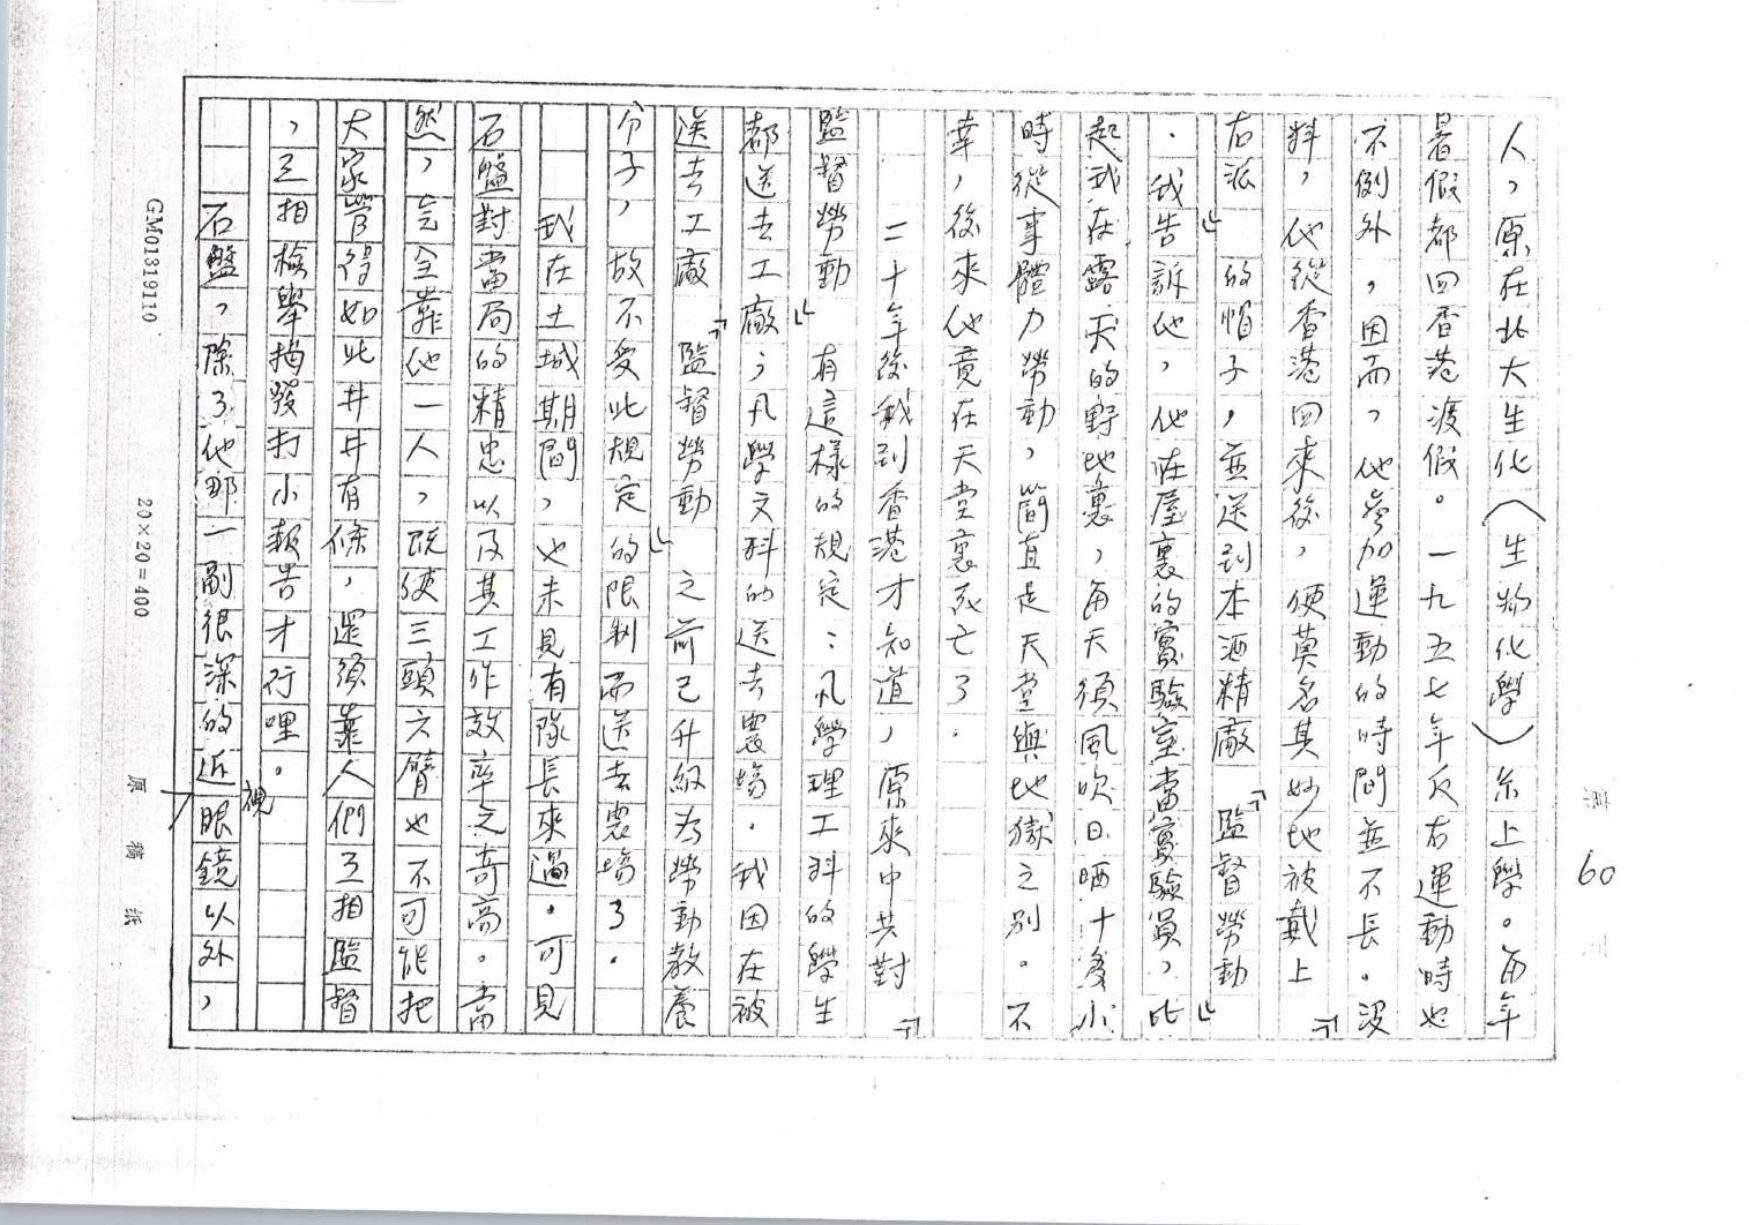 60
人，原在北大生化（生物化學）系上學。每年
暑假都回香港渡假。一九五七年反右運動時也
不例外，因而，他參加運動的時間並不長。沒
料，他從香港回來後，便莫名其妙地被戴上「
右派」的帽子，並送到本酒精廠「監督勞動」
．我告訴他，他在屋裏的實驗室當實驗員，比
起我在露天的野地裏，每天須風吹日晒十多小
時從事體力勞動，簡直是天堂與地獄之別。不
幸，後來他竟在天堂裏死亡了．
二十年後我到香港才知道，原來中共對「
監督勞動」有這樣的規定：凡學理工科的學生
都送去工廠；凡學文科的送去農場．我因在被
送去工廠「監督勞動」之前已升級為勞動教養
分子，故不受此規定的限制而送去農場了．
我在土城期間，也未見有隊長來過．可見
石盤對當局的精忠以及其工作效率之奇高。當
然，完全靠他一人，既使三頭六臂也不可能把
大家管得如此井井有條，還須靠人們互相監督
，互相檢舉揭發打小報告才行哩。
石盤，除了他那一副很深的近視眼鏡以外，
GM01319110
20×20=400
原稿紙